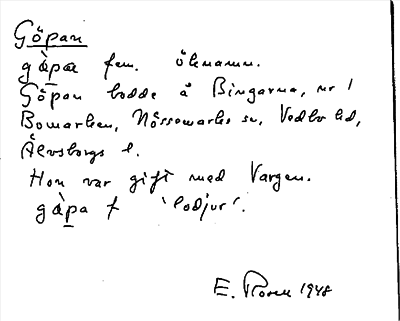 Göpan
gàpa fem. öknamn.
Göpan bodde å Bingarna, nr 1
Bomarken, Nössemarks sn, Vedbo hd,
Älvsborgs l.
Hon var gift med Vargen.
gàpa f 'lodjur'.
E. Rosell 1948